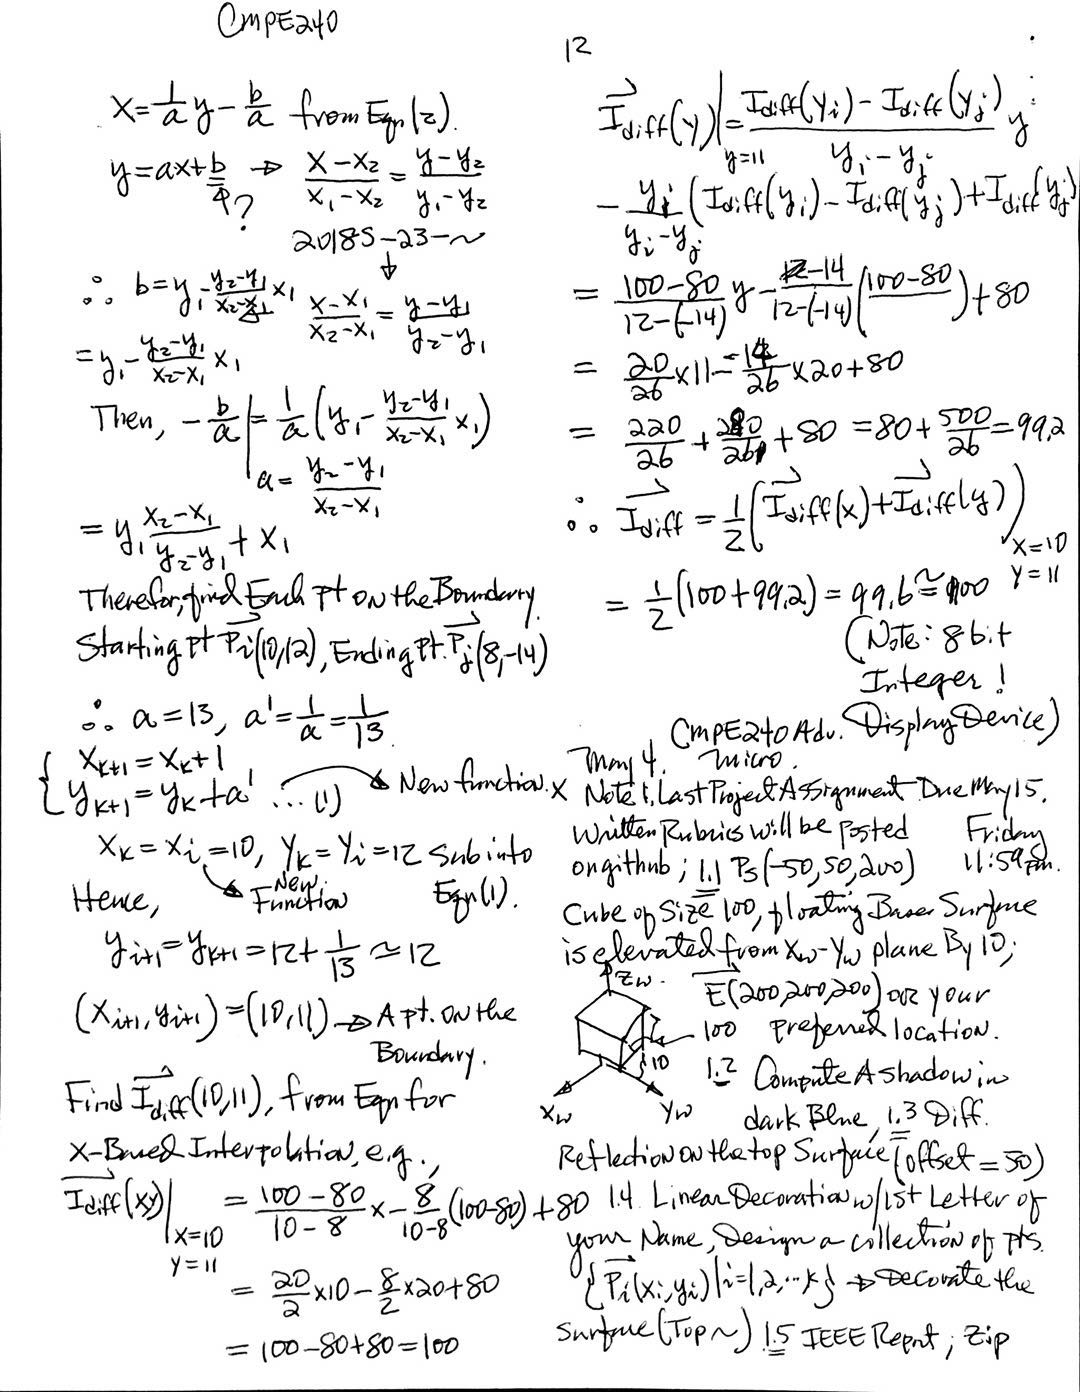 CMPE240
12
X = 1/a y - b/a from Eqn(2).
y = ax+b → (X-X2)/(X1-X2) = (y-y2)/(y1-y2)
?
2018S-23-~
↓
∴ b = y1 - (y2-y1)/(x2-x1) x1   (X-X1)/(X2-X1) = (y-y1)/(y2-y1)
= y1 - (y2-y1)/(x2-x1) x1
Then, -b/a | = 1/a (y1 - (y2-y1)/(x2-x1) x1)
a = (y2-y1)/(x2-x1)
= y1 (x2-x1)/(y2-y1) + x1
Therefor, find Each Pt on the Boundary
Starting Pt Pi(10,12), Ending Pt. Pj(8,-14)
∴ a = 13, a' = 1/a = 1/13
{ Xk+1 = Xk+1
yk+1 = yk+a' ...(1) → New function. X
Xk = Xi = 10, Yk = Yi = 12 Sub into
Hence, → New Function Eqn(1).
yi+1 = yk+1 = 12 + 1/13 ≃ 12
(Xi+1, yi+1) = (10,11) → A pt. on the
Boundary.
Find Idiff(10,11), from Eqn for
X-Based Interpolation, e.g.,
Idiff(xy)| X=10 Y=11 = (100-80)/(10-8) x - 8/(10-8) (100-80) + 80
= 20/2 x10 - 8/2 x20+80
= 100-80+80 = 100
Idiff(y)| y=11 = (Idiff(yi) - Idiff(yj))/(yi-yj) y
- yj/(yi-yj) (Idiff(yi) - Idiff(yj)) + Idiff(yj)
= (100-80)/(12-(-14)) y - -14/(12-(-14)) (100-80) + 80
= 20/26 x11 - -14/26 x20+80
= 220/26 + 280/26 + 80 = 80 + 500/26 = 99.2
∴ Idiff = 1/2 (Idiff(x) + Idiff(y)) | X=10 Y=11
= 1/2 (100+99.2) = 99.6 ≃ 100
(Note: 8 bit
Integer!
Display Device)
CMPE240 Adv. Micro.
May 4.
Note 1. Last Project Assignment Due May 15,
Written Rubrics will be posted Friday
on github; 1.1 Ps(-50,50,200) 11:59pm.
Cube of Size 100, floating Base Surface
is elevated from Xw-Yw plane By 10;
Zw. E(200,200,200) or your
100 preferred location.
10 1.2 Compute A shadow in
Xw Yw dark Blue, 1.3 Diff.
Reflection on the top Surface (offset = 50)
1.4. Linear Decoration w/1st Letter of
your Name, Design a collection of pts.
{Pi(xi,yi)|i=1,2,..k} → Decorate the
Surface (Top~) 1.5 IEEE Report; Zip